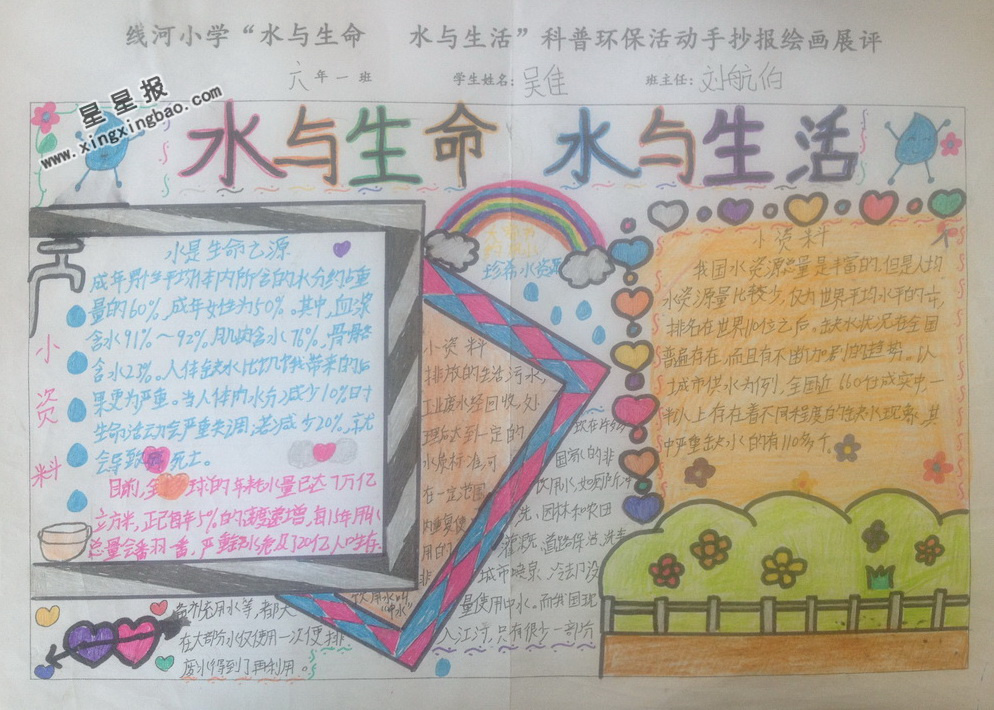 线河小学“水与生命 水与生活”科普环保活动手抄报绘画展评
六年一班 学生姓名：吴佳 班主任：刘航伯
星星报
www.xingxingbao.com
水与生命 水与生活
水是生命之源
成年男性平均体内所含的水分约占重
量的60%，成年女性为50%。其中，血浆
含水91%～92%，肌肉含水76%，骨骼
含水23%。人体缺水比饥饿带来的后
果更为严重。当人体的水分减少10%时
生命活动会严重失调，若减少20%，就
会导致 死亡。
目前，全 球的年耗水量已达7万亿
立方米，正以每年5%的速度递增，每15年用水
总量会番羽一番，严重缺水危及了20亿人口生存
小资料
珍稀水资源
小资料
排放的生活污水，
工业废水经回收，处
理后达到一定的
水质标准，可
在一定范围
内重复使
用的
非
饮用水叫
“中水”
国家的非
饮用水，如厕所冲
洗、园林和农田
灌溉、道路保洁、洗车
城市喷泉、冷却设
量使用中水。而我国现
入江河，只有很少一部分
备补充用水等，都大
在大部分水仅使用一次便排
废水得到了再利用。
小资料
我国水资源总量是丰富的，但是人均
水资源量比较少，仅为世界平均水平的
排名在世界110位之后。缺水状况在全国
普遍存在，而且有不断加剧的趋势。以
城市供水为例，全国近660个城市中，一
半以上存在着不同程度的缺水现象，其
中严重缺水的有110多个。